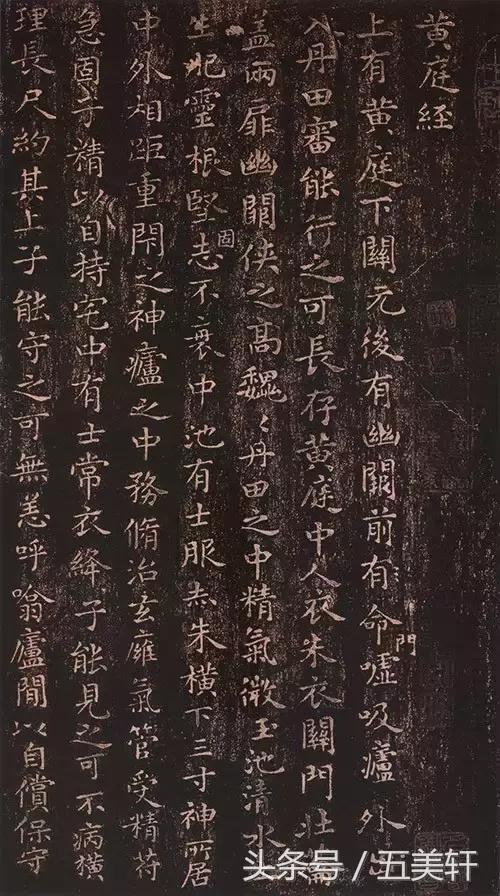 黄庭経
上有黄庭下關元後有幽闕前有命門嘘吸廬外出
入丹田審能行之可長存黄庭中人衣朱衣關門壮籥
蓋兩扉幽闕侠之高魏〻丹田之中精氣微玉池清水上
生肥靈根堅固志不衰中池有士服赤朱横下三寸神所居
中外相距重閇之神廬之中務脩治玄廱氣管受精符
急固子精以自持宅中有士常衣絳子能見之可不病横
理長尺約其上子能守之可無恙呼噏廬間以自償保守
头条号 / 五美轩